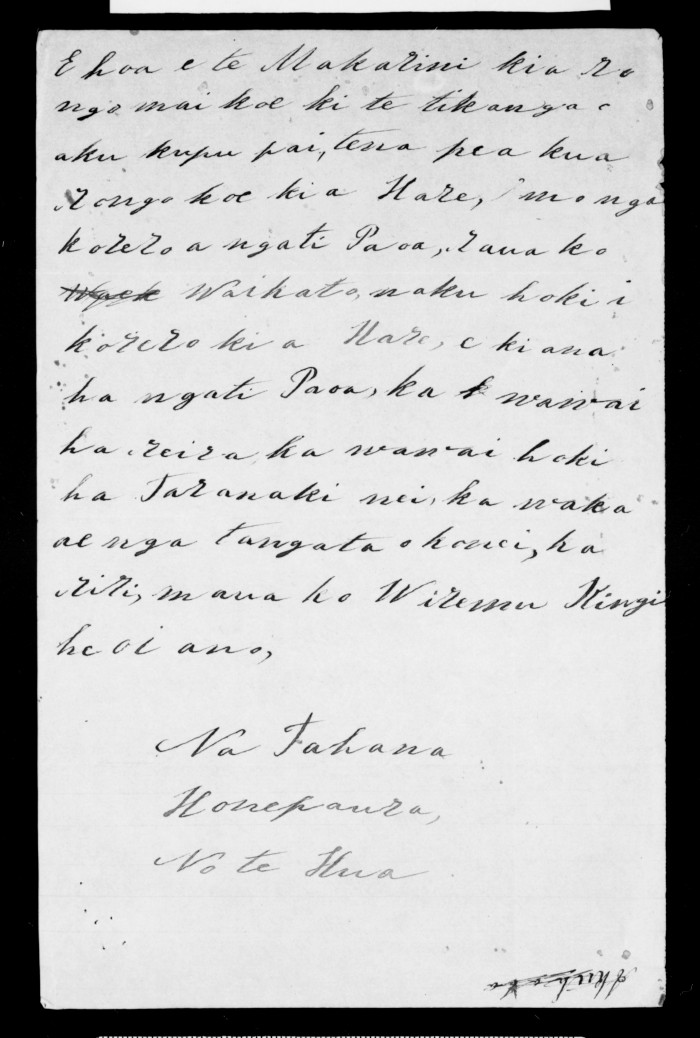 E hoa e te Makarini kia ro
ngo mai koe ki te tikanga o
aku kupu pai, tena pea kua
rongo koe ki a Hare, mo nga
korero a ngati Paoa, raua ko
Waikato, naku hoki i
korero ki a Hare, e ki ana
ha ngati Paoa, ka wawai
ha reira, ka wawai hoki
ha Taranaki nei, ka waka
ae nga tangata o konei, ka
riri, maua ko Wiremu Kingi
he oi ano,
Na Tahana
No te Hua